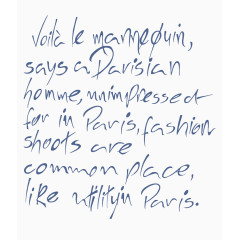 Voilà le mannequin,
says a Parisian
homme, unimpressed
for in Paris, fashion
shoots are
common place,
like utility in Paris.